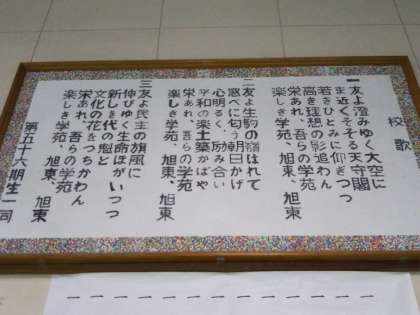 校歌
一 友よ澄みゆく大空に
ま近くそそる天守閣
若きひとみに仰ぎつつ
高き理想の影追わん
栄あれ、吾らの学苑
楽しき学苑、旭東、旭東
二 友よ生駒の嶺はれて
窓べに匂う朝日かげ
心明るく、励み合い
平和の楽土築かばや
栄あれ、吾らの学苑
楽しき学苑、旭東、旭東
三 友よ民主の旗風に
伸びゆく生命ほがいつつ
新しき代の魁と
文化の花をつちかわん
栄あれ、吾らの学苑
楽しき学苑、旭東、旭東
第五十六期生一同